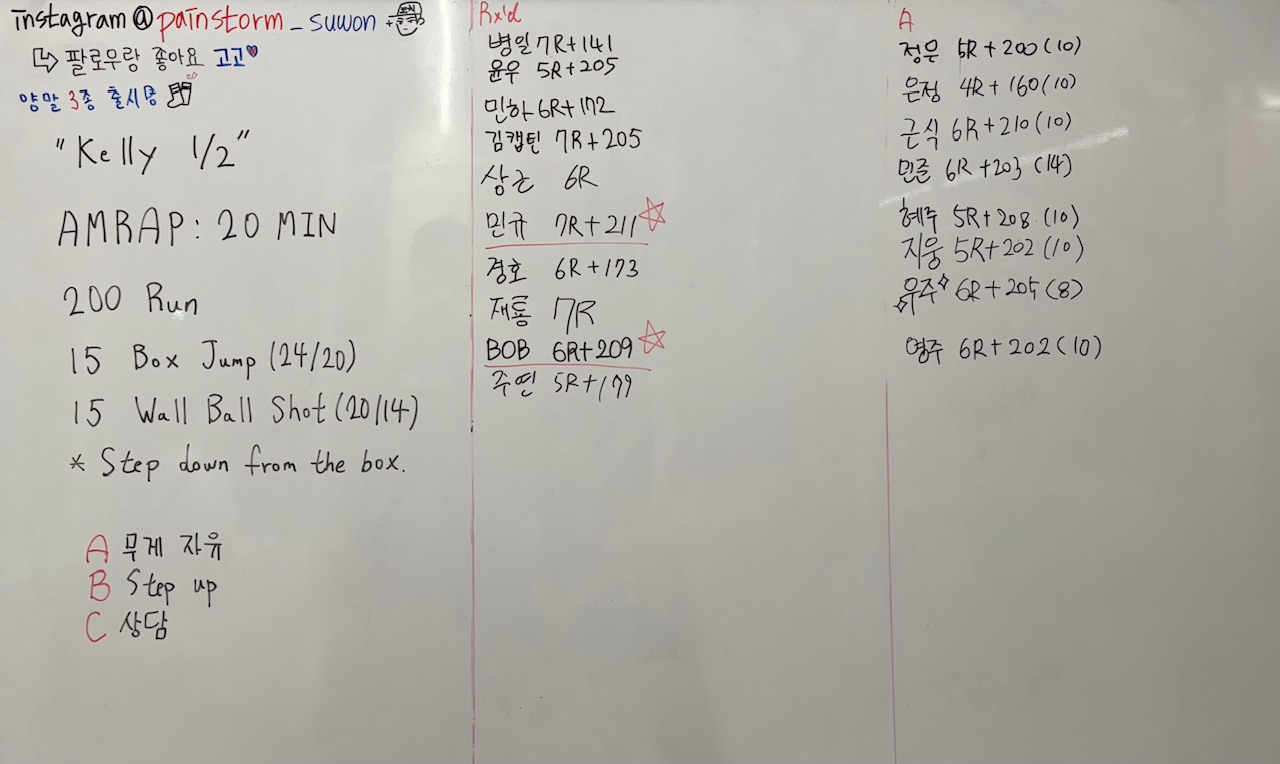 instagram@painstorm_suwon +
↳ 팔로우랑 좋아요 고고♥
양말 3종 출시중
"Kelly 1/2"
AMRAP: 20 MIN
200 Run
15 Box Jump (24/20)
15 Wall Ball Shot (20/14)
* Step down from the box.
A 무게 자유
B Step up
C 상담
Rx'd
병일 7R+141
윤우 5R+205
민하 6R+172
김캡틴 7R+205
상근 6R
민규 7R+211 ☆
경호 6R+173
재룡 7R
BOB 6R+209 ☆
주연 5R+179
A
정은 5R+200(10)
은정 4R+160(10)
근식 6R+210(10)
민준 6R+203(14)
혜주 5R+208(10)
지웅 5R+202(10)
우주 6R+205(8)
영주 6R+202(10)